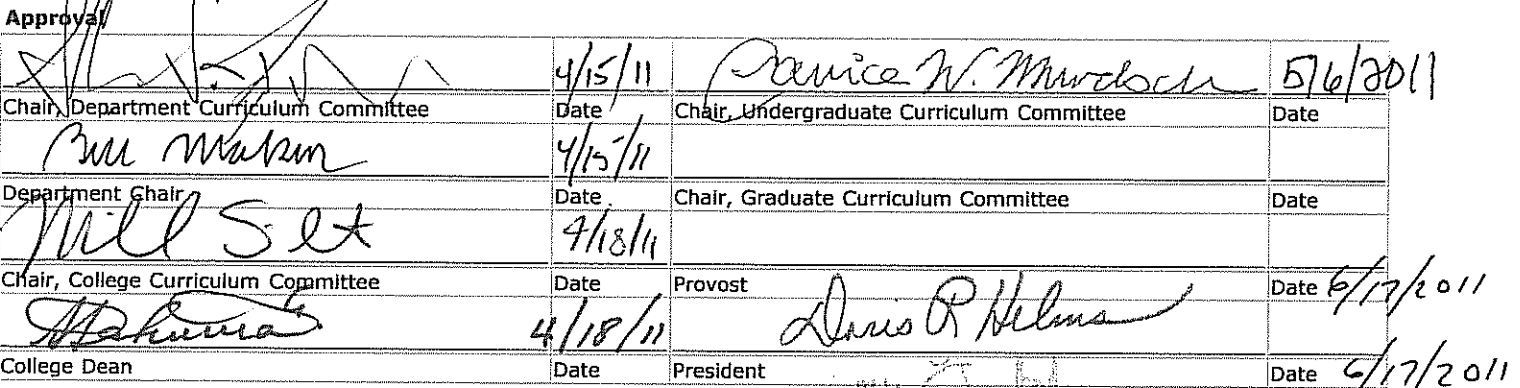 Approval
4/15/11 Janice W. Murdoch 5/6/2011
Chair, Department Curriculum Committee Date Chair, Undergraduate Curriculum Committee Date
Bill 4/15/11
Department Chair Date Chair, Graduate Curriculum Committee Date
4/18/11
Chair, College Curriculum Committee Date Provost Date 6/17/2011
4/18/11 Doris R Helms
College Dean Date President Date 6/17/2011